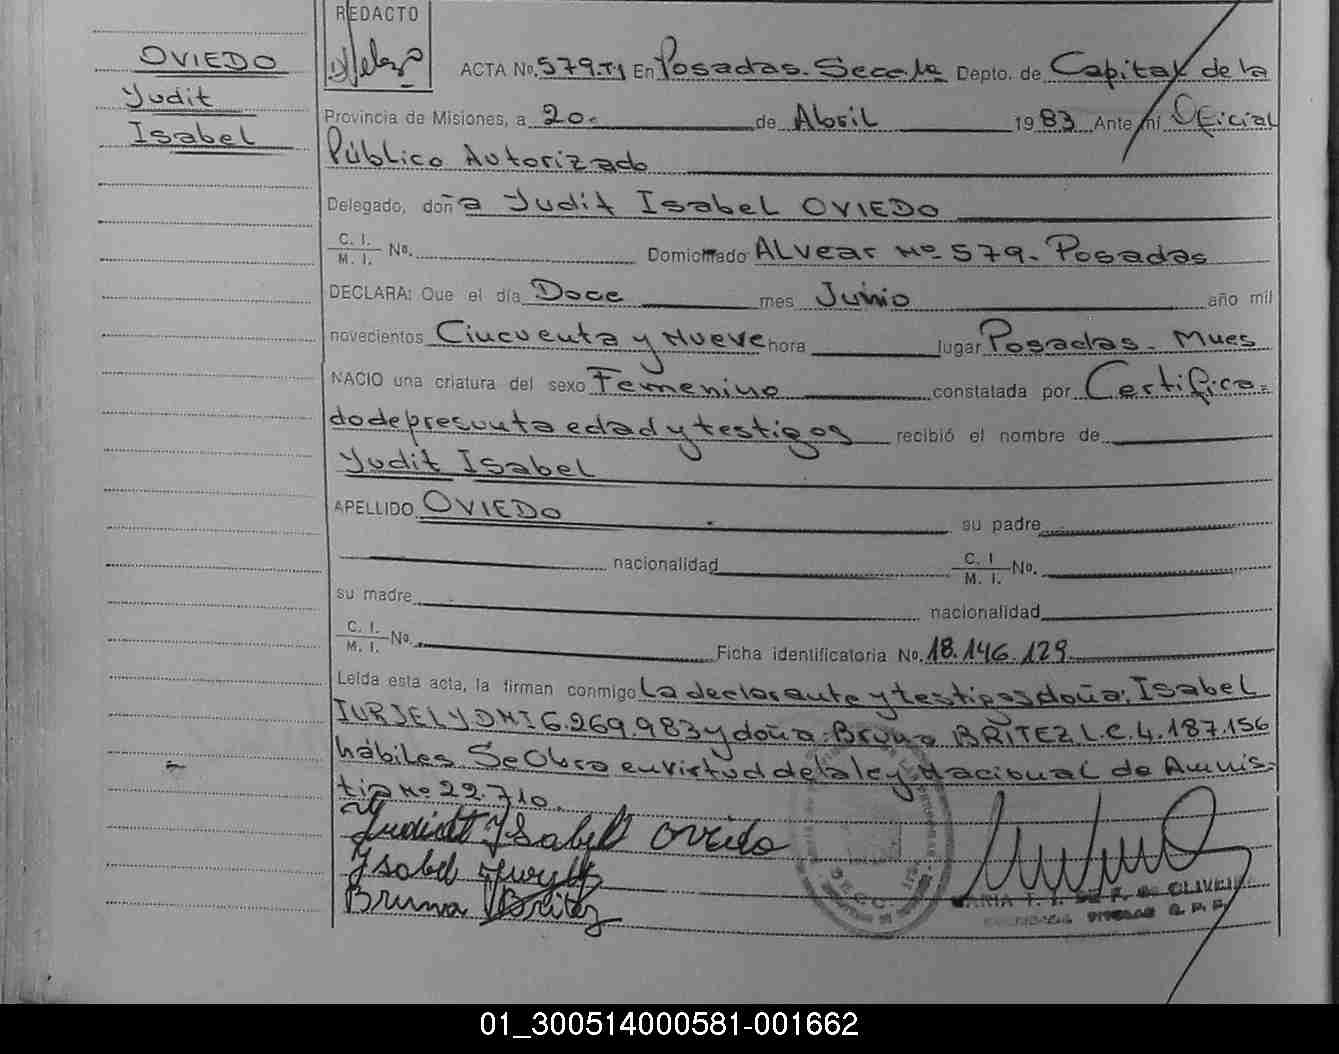 OVIEDO
Yudit
Isabel
REDACTO
ACTA No. 579.T1 En Posadas. Secc. 1a Depto. de Capital de la
Provincia de Misiones, a 20. de Abril 1983 Ante mí Oficial
Público Autorizado
Delegado, doña Yudit Isabel OVIEDO
C. I.
M. I. No. Domiciliado ALvear No 579. Posadas
DECLARA: Que el día Doce mes Junio año mil
novecientos Cincuenta y Nueve hora lugar Posadas. Mnes
NACIO una criatura del sexo Femenino constatada por Certifica=
do de presunta edad y testigos recibió el nombre de
Yudit Isabel
APELLIDO OVIEDO su padre
nacionalidad C. I.
M. I. No.
su madre nacionalidad
C. I.
M. I. No. Ficha identificatoria No. 18.146.129
Leída esta acta, la firman conmigo La declarante y testigos doña: Isabel
DNI 6.269.983 y doña: Bruna BRITEZ L.C. 4.187.156
hábiles. Se Obra en virtud de la ley Nacional de Amnis=
tia No 22.710.
Yudit Ysabel Oviedo
Ysabel
Bruna Britez
01_300514000581-001662